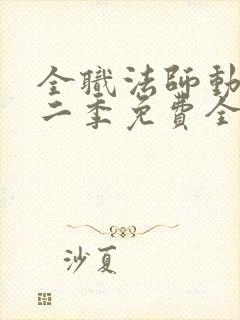 全職法師動
二季免費全
沙夏